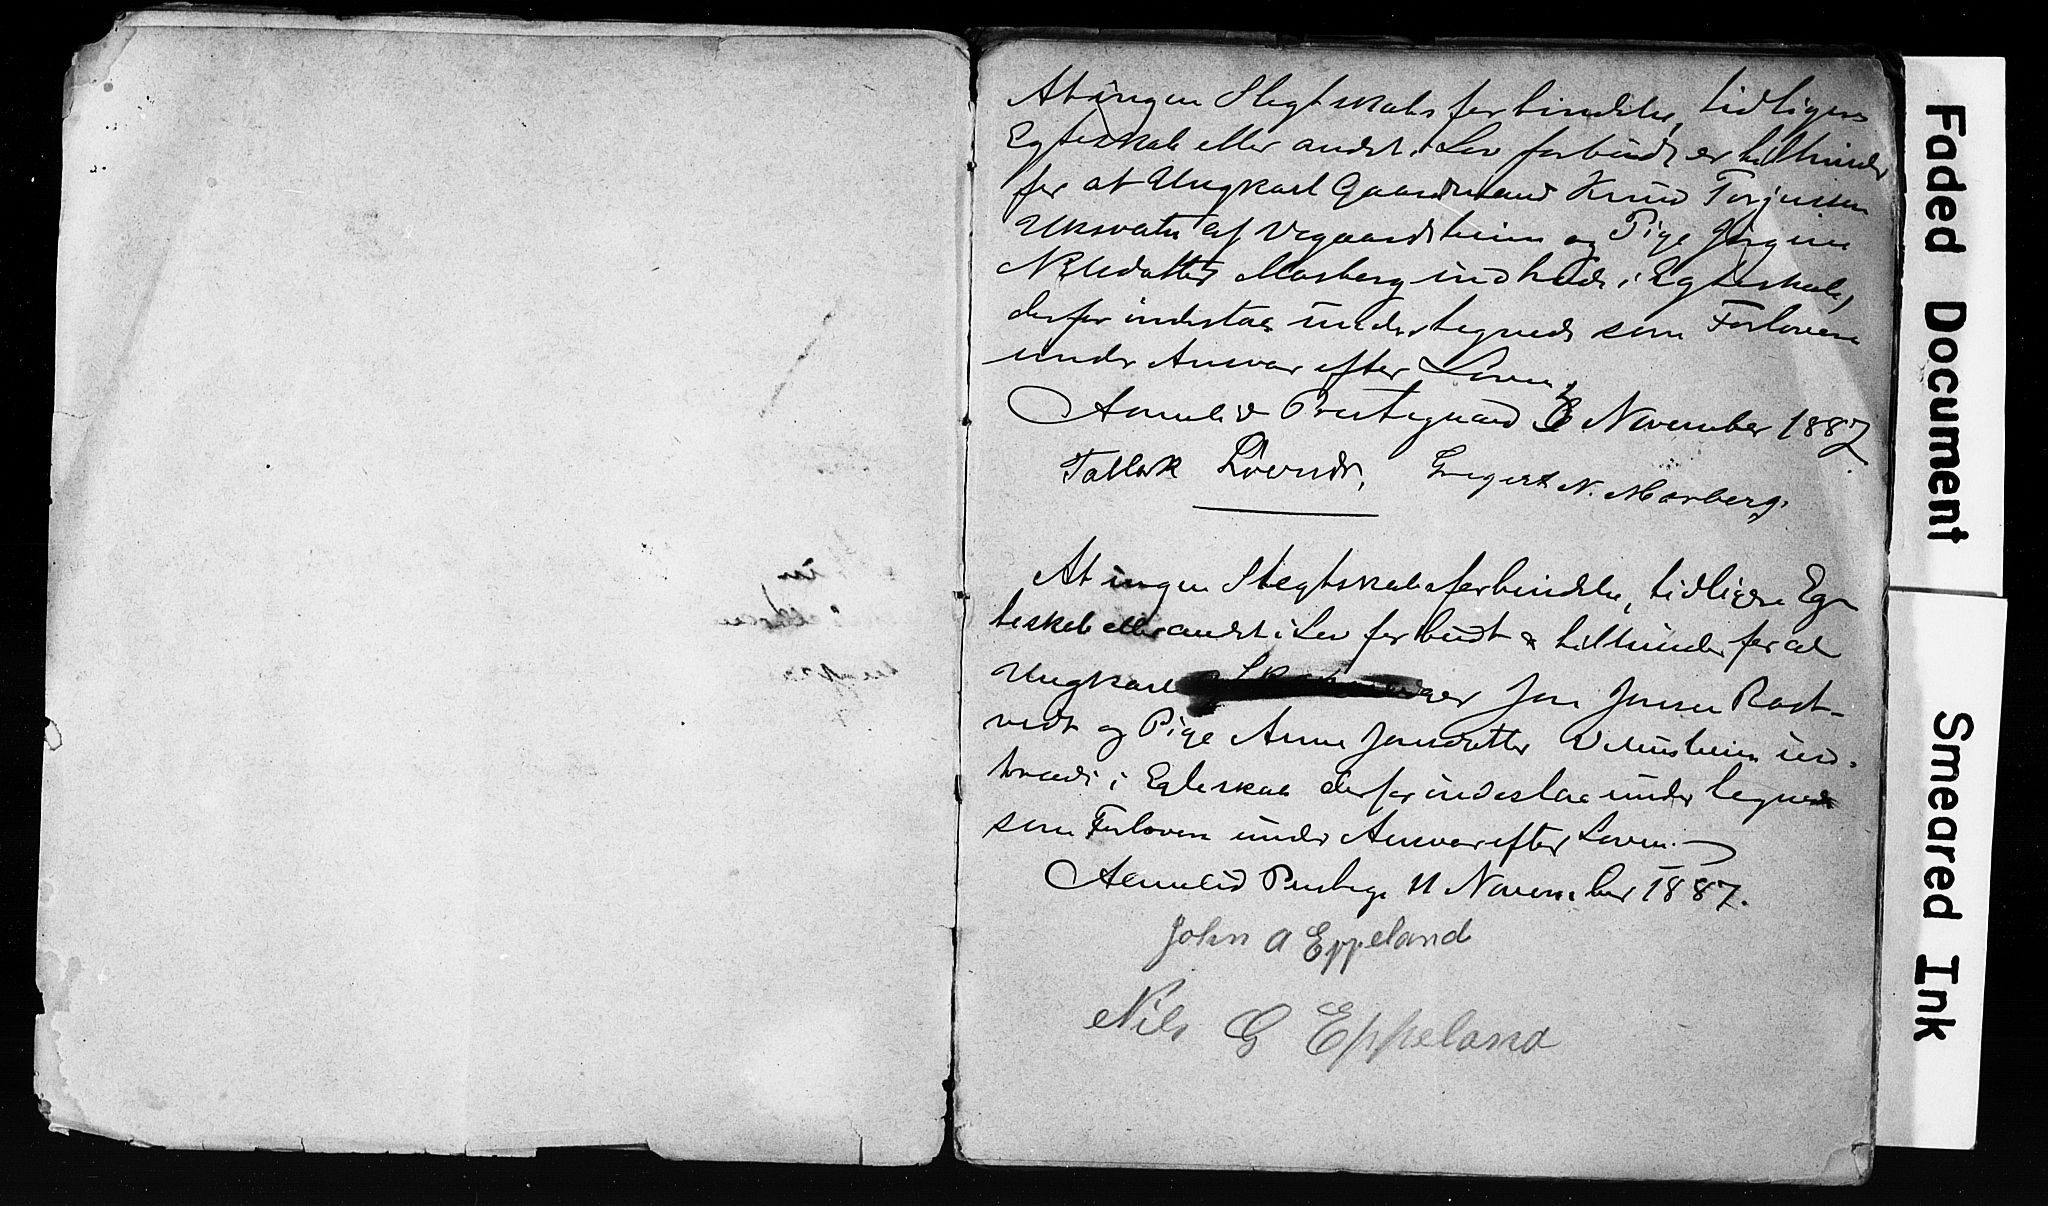 At ingen Slegtskabsforbindelse, tidligere
Egteskab eller andet i Lov forbudt er til Hinder
for at Ungkarl Gaardmand Knud Torjussen
Uksvatn af Vegaardsheien og Pige Jörgine
Nilsdatter Masberg indtræde i Egteskab,
derfor indestaa undertegnede som Forlovere
under Ansvar efter Loven.
Aamlid Prestegaard November 1887.
Tallak N. Masberg.
At ingen Slegtskabsforbindelse, tidligere Eg-
teskab eller andet i Lov forbudt er til Hinder for at
Ungkarl Jon Jonsen Rost-
vedt og Pige Anne Jonsdatter ind-
træde i Egteskab derfor indestaa undertegnede
som Forlovere under Ansvar efter Loven.
Aamlid Prestegd. 11 November 1887.
John A Eppeland
Nils G Eppeland
Faded Document
Smeared Ink